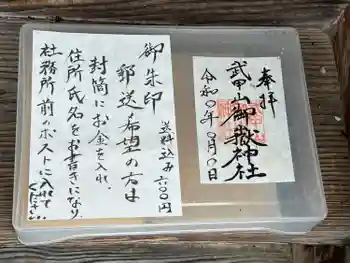 奉拝
武甲山御嶽神社
令和〇年〇月〇日
御朱印
郵送希望の方は
送料込み六〇〇円
封筒にお金を入れ、
住所氏名をお書きになり
社務所前のポストに入れて
ください。